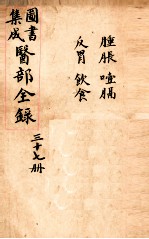 腫脹 噎膈
反胃 飲食
圖書
集成
醫部全錄
三十七册